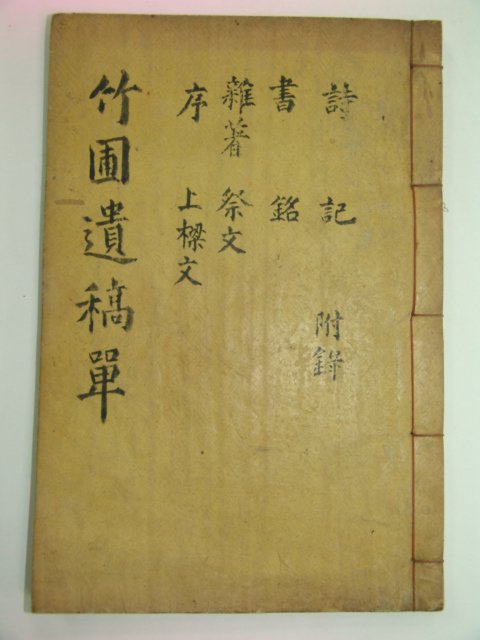 詩 記 附錄
書 銘
雜著 祭文
序 上樑文
竹圃遺稿單